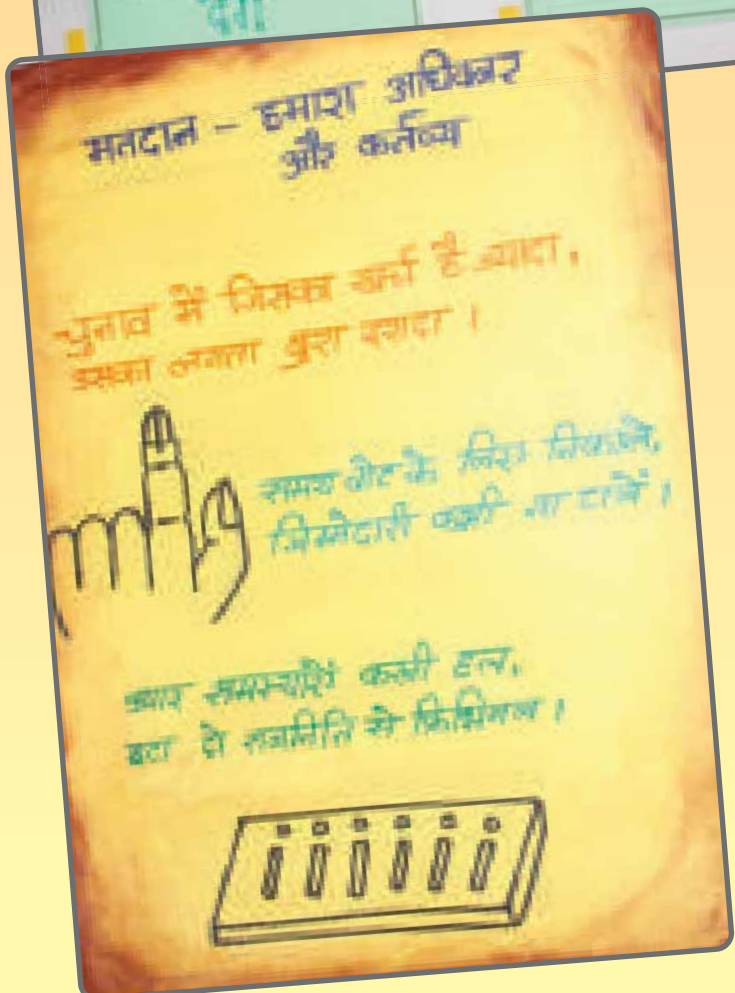 देश
मतदान – हमारा अधिकार
और कर्तव्य
चुनाव में जिसका खर्चा है ज्यादा,
उसका लगता बुरा इरादा ।
समय वोट के लिए निकालें,
जिम्मेदारी कभी ना टालें ।
अगर समस्याऐं करनी हल,
हटा दो राजनिति से क्रिमिनल ।